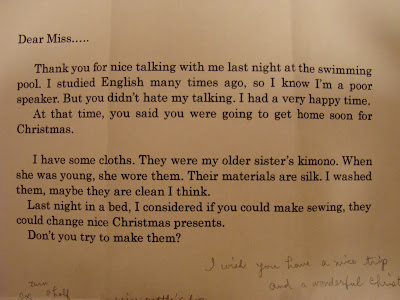 Dear Miss.....
Thank you for nice talking with me last night at the swimming
pool. I studied English many times ago, so I know I'm a poor
speaker. But you didn't hate my talking. I had a very happy time.
At that time, you said you were going to get home soon for
Christmas.
I have some cloths. They were my older sister's kimono. When
she was young, she wore them. Their materials are silk. I washed
them, maybe they are clean I think.
Last night in a bed, I considered if you could make sewing, they
could change nice Christmas presents.
Don't you try to make them?
I wish you have a nice trip
and a wonderful Christ